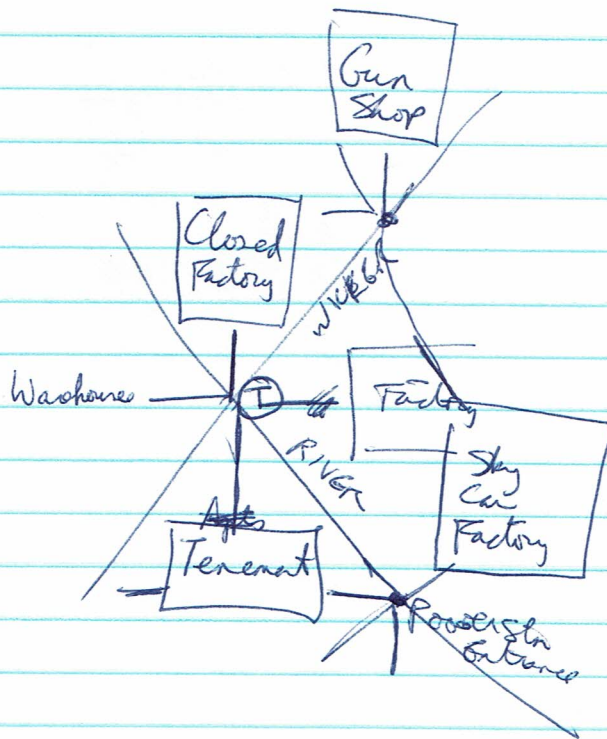 Gun
Shop
Closed
Factory
Warehouse
T
Factory
RIVER
Sky
Car
Factory
Apts
Tenement
Entrance